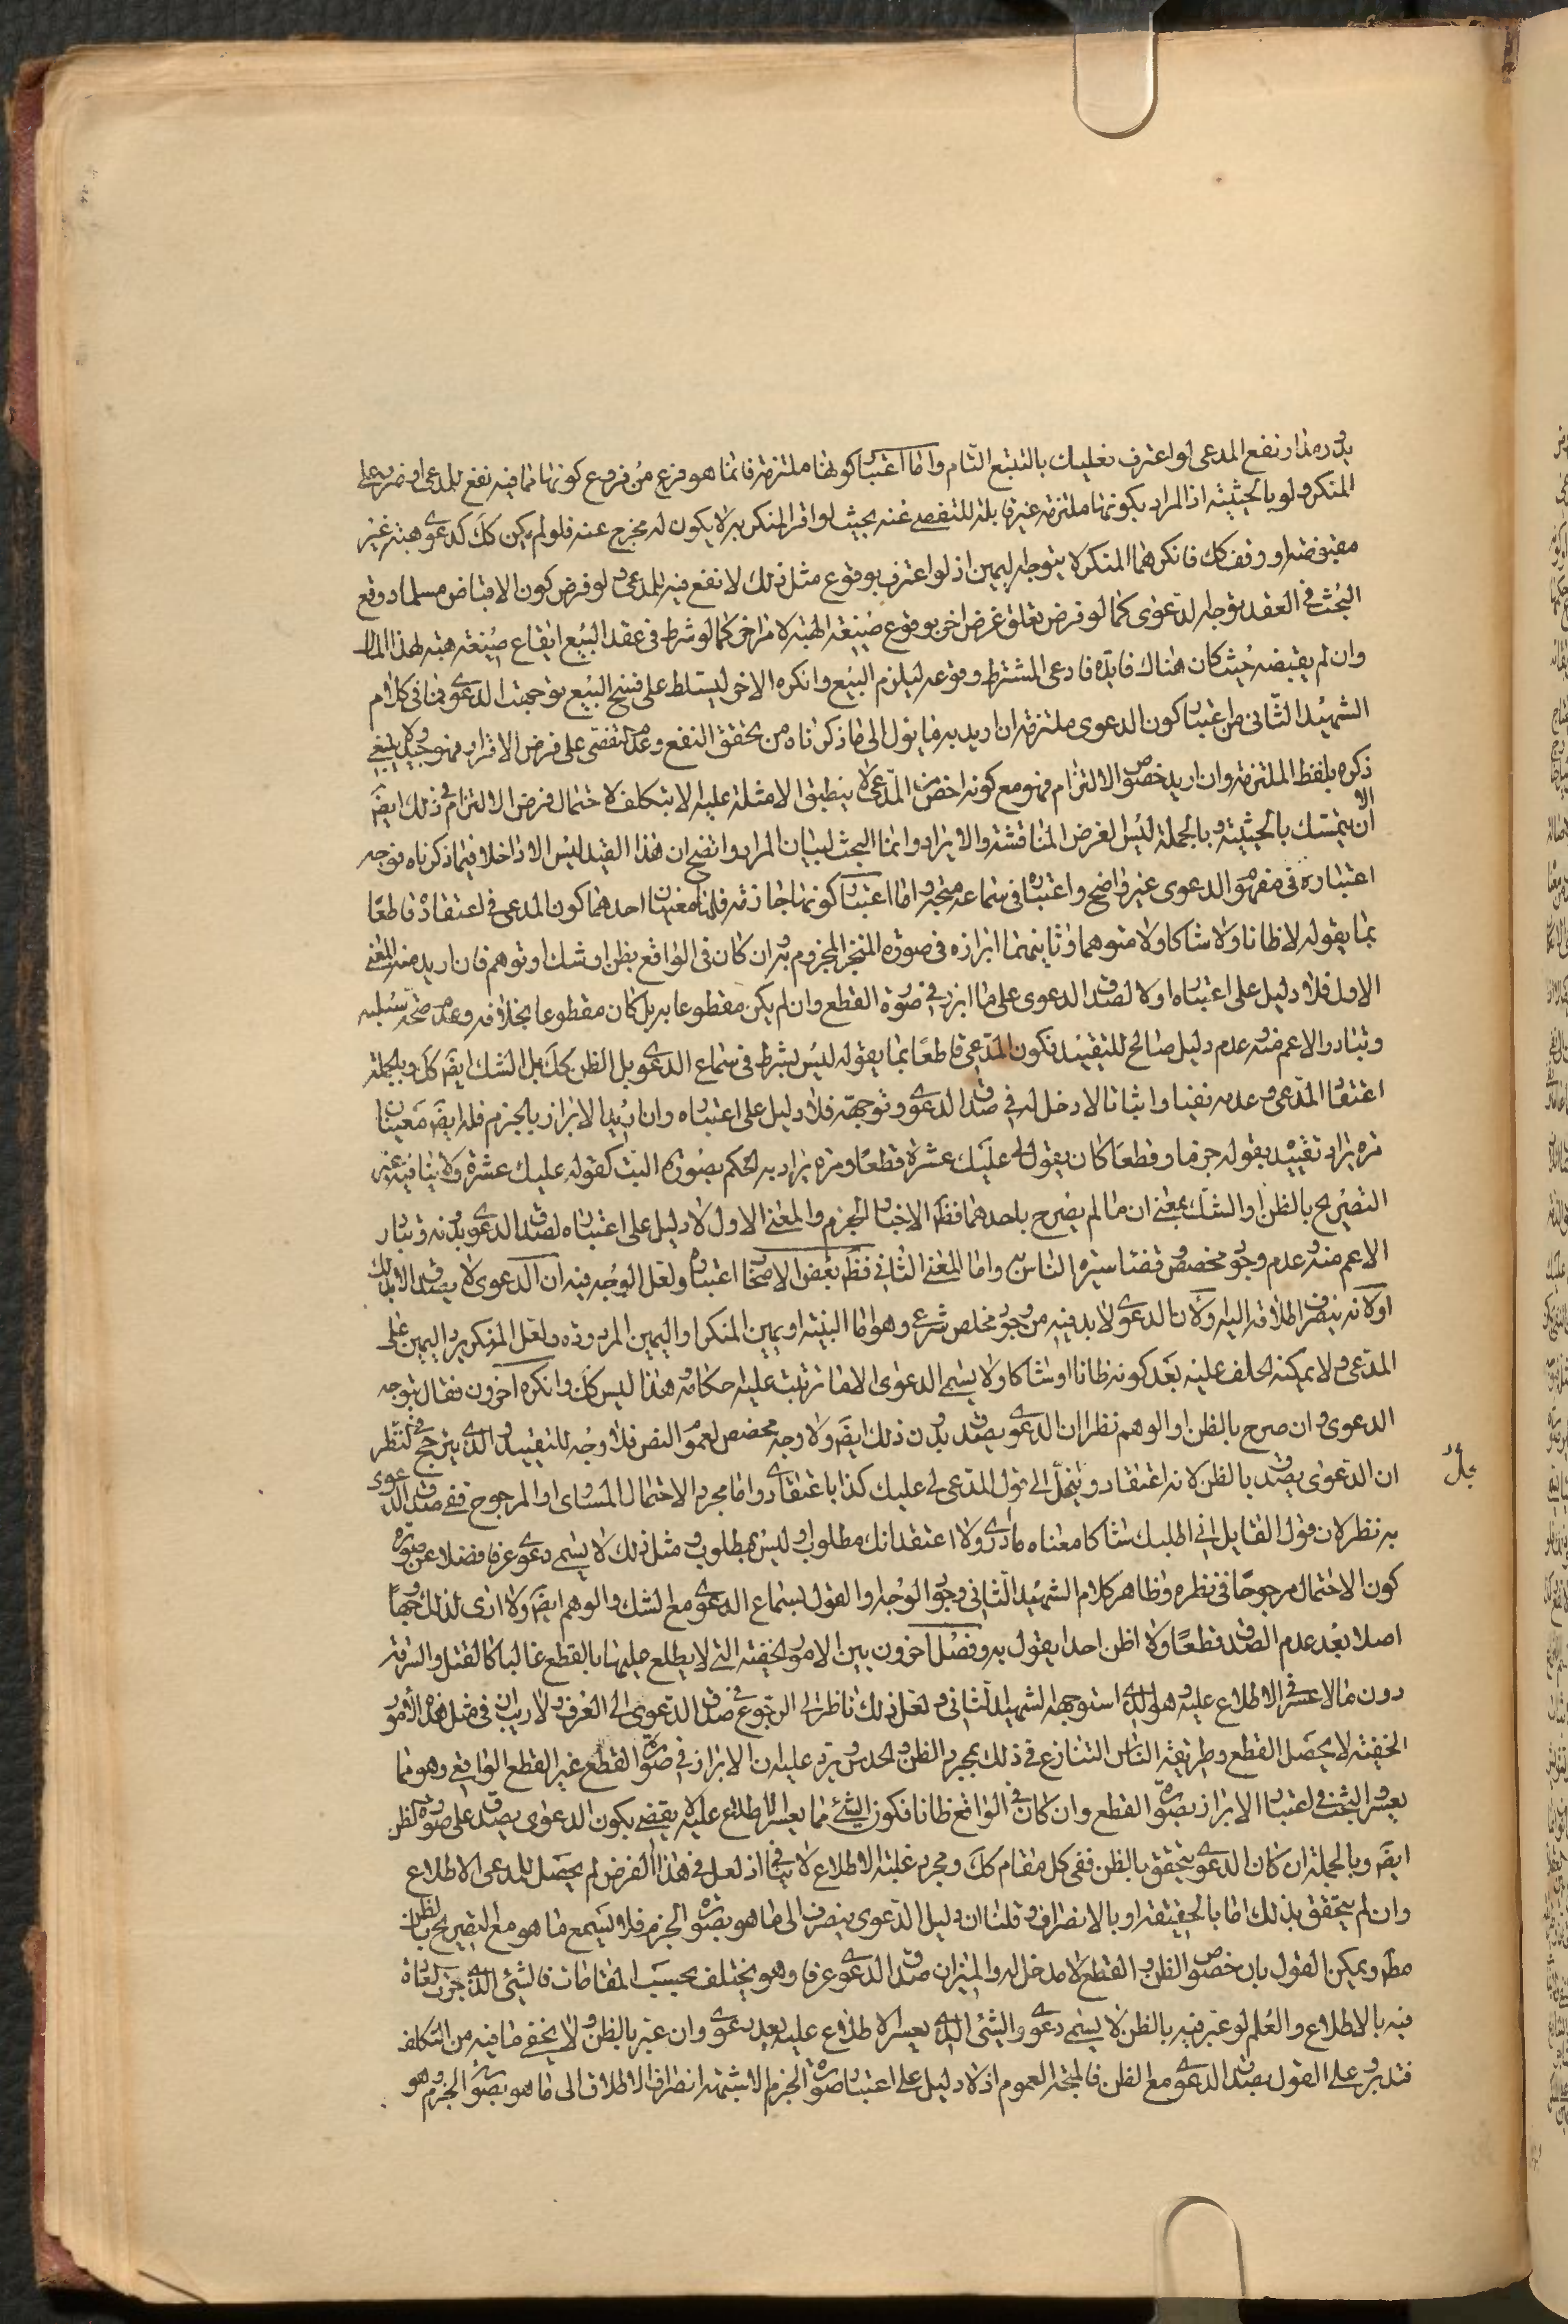 يدور مدار نفع المدعى لو اعترف فعليك بالتتبع التام واما اعتبار كونها ملتزمة فانما هو فرع من فروع كونها مما فيه نفع للمدعى او ضرر على
المنكر ولو بالحيثية اذ المراد بكونها ملتزمة غير قابلة للتفصى عنه بحيث لو اقر المنكر به لا يكون له مخرج عنه فلو لم يكن كك كدعوى هبة غير
مقبوضة او وقف كك فانكرهما المنكر لا يتوجه اليمين اذ لو اعترف بوقوع مثل ذلك لا نفع فيه للمدعى ولو فرض كون الاقباض مسلما ووقع
البحث فى العقد توجه الدعوى كما لو فرض تعلق غرض اخر بوقوع صيغة الهبة لامر اخر كما لو شرط فى عقد البيع ايقاع صيغة هبة لهذا المال
وان لم يقبضه حيث كان هناك فايدة فادعى المشترط وقوعه ليلزم البيع وانكره الاخر ليتسلط على فسخ البيع توجهت الدعوى فما فى كلام
الشهيد الثانى من اعتبار كون الدعوى ملتزمة ان اريد به ما يؤل الى ما ذكرناه من تحقق النفع وعدم التفصى على فرض الاقرار فهو جيد ولا ينبغى
ذكره بلفظ الملتزمة وان اريد خصوص الالتزام فهو مع كونه اخص من المدعى لا ينطبق الامثلة عليه الا بتكلف لاحتمال فرض الالتزام فى ذلك ايضا
الا ان يتمسك بالحيثية وبالجملة ليس الغرض المناقشة والايراد وانما البحث لبيان المراد واتضح ان هذا القيد ليس الا داخلا فيما ذكرناه فوجه
اعتباره فى مفهوم الدعوى غير واضح واعتباره فى سماعه متجه واما اعتبار كونها جازمة فلها معنيان احدهما كون المدعى فى اعتقاده قاطعا
بما يقوله لا ظانا ولا شاكا ولا متوهما وثانيهما ابرازه فى صورة المنجز المجزوم به وان كان فى الواقع بظن او شك او توهم فان اريد منه المعنى
الاول فلا دليل على اعتباره اولا لصدق الدعوى على ما ابرز فى صورة القطع وان لم يكن مقطوعا به بل كان مقطوعا بخلافه وعدم صحة سلبه
وتبادر الاعم منه وعدم دليل صالح للتقييد فكون المدعى قاطعا بما يقوله ليس بشرط فى سماع الدعوى بل الظن كك بل الشك ايضا كك وبالجملة
اعتقاد المدعى وعدمه نفيا واثباتا لا دخل له فى صدق الدعوى وتوجهه فلا دليل على اعتباره وان اريد الابراز بالجزم فله ايضا معنيان
مرة يراد تقييده بقوله جزما وقطعا كان يقول لى عليك عشرة قطعا ومرة يراد به الحكم بصورة البت كقوله عليك عشرة ولا ينافيه غير
التصريح بالظن او الشك بمعنى ان ما لم يصرح باحدهما فظ الاخبار الجزم والمعنى الاول لا دليل على اعتباره لصدق الدعوى بدونه وتبادر
الاعم منه وعدم وجود مخصص وقضاء سيرة الناس به واما المعنى الثانى فظ بعض الاصحاب اعتباره ولعل الوجه فيه ان الدعوى لا يصدق الا بذلك
او لانه ينصرف اطلاقه اليه ولان الدعوى لا بد فيه من وجود مخلص شرعى وهو اما البينة او يمين المنكر او اليمين المردودة ولعل المنكر يرد اليمين على
المدعى ولا يمكنه الحلف عليه بعد كونه ظانا او شاكا ولا يسمى الدعوى الا ما ترتب عليه احكامه وهذا ليس كك وانكره اخرون فقال بتوجه
الدعوى وان صرح بالظن او الوهم نظرا ان الدعوى يصدق بدون ذلك ايضا ولا وجه مخصص لعموم النص فلا وجه للتقييد والذى يترجح فى النظر
ان الدعوى يصدق بالظن لانه اعتقاد وينحل الى قول المدعى لى عليك كذا باعتقادى واما مجرد الاحتمال المساوى او المرجوح ففى صدق الدعوى
به نظر لان قول القايل انى اطلبك شاكا معناه ما ادرى ولا اعتقد انك مطلوب او ليس بمطلوب ومثل ذلك لا يسمى دعوى عرفا فضلا عن صورة
كون الاحتمال مرجوحا فى نظره وظاهر كلام الشهيد الثانى وجود الوجه والقول بسماع الدعوى مع الشك والوهم ايضا ولا ارى لذلك وجها
اصلا بعد عدم الصدق قطعا ولا اظن احدا يقول به وفصل اخرون بين الامور الخفية التى لا يطلع عليها بالقطع غالبا كالقتل والسرقة
دون ما لا عسر فى الاطلاع عليه وهو الذى استوجهه الشهيد الثانى ولعل ذلك ناظر الى الرجوع فى صدق الدعوى الى العرف ولا ريب ان فى مثل هذه الامور
الخفية لا يحصل القطع وطريقة الناس التنازع فى ذلك بمجرد الظن والحدس ويرد عليه ان الابراز فى صورة القطع غير القطع الواقعى وهو مما
يعسر والبحث فى اعتبار الابراز بصورة القطع وان كان فى الواقع ظانا فكون الشئ مما يعسر الاطلاع عليه لا يقضى بكون الدعوى يصدق على صورة الظن
ايضا وبالجملة ان كان الدعوى يتحقق بالظن ففى كل مقام كك ومجرد غلبة الاطلاع لا ينافى اذ لعل فى هذا الفرض لم يحصل للمدعى الاطلاع
وان لم يتحقق بذلك اما بالحقيقة او بالانصراف وقلنا ان دليل الدعوى ينصرف الى ما هو بصورة الجزم فلا يسمع ما هو مع التصريح بالظن
مط ويمكن القول بان خصوص الظن والقطع لا مدخل له والميزان صدق الدعوى عرفا وهو يختلف بحسب المقامات فالشئ الذى جرت العادة
فيه بالاطلاع والعلم لو عبر فيه بالظن لا يسمى دعوى والشئ الذى يعسر الاطلاع عليه يعد دعوى وان عبر بالظن ولا يخفى ما فيه من التكلف
فتدبر وعلى القول بصدق الدعوى مع الظن فالمتجه العموم اذ لا دليل على اعتبار صورة الجزم الا شبهة انصراف الاطلاق الى ما هو بصورة الجزم وهو